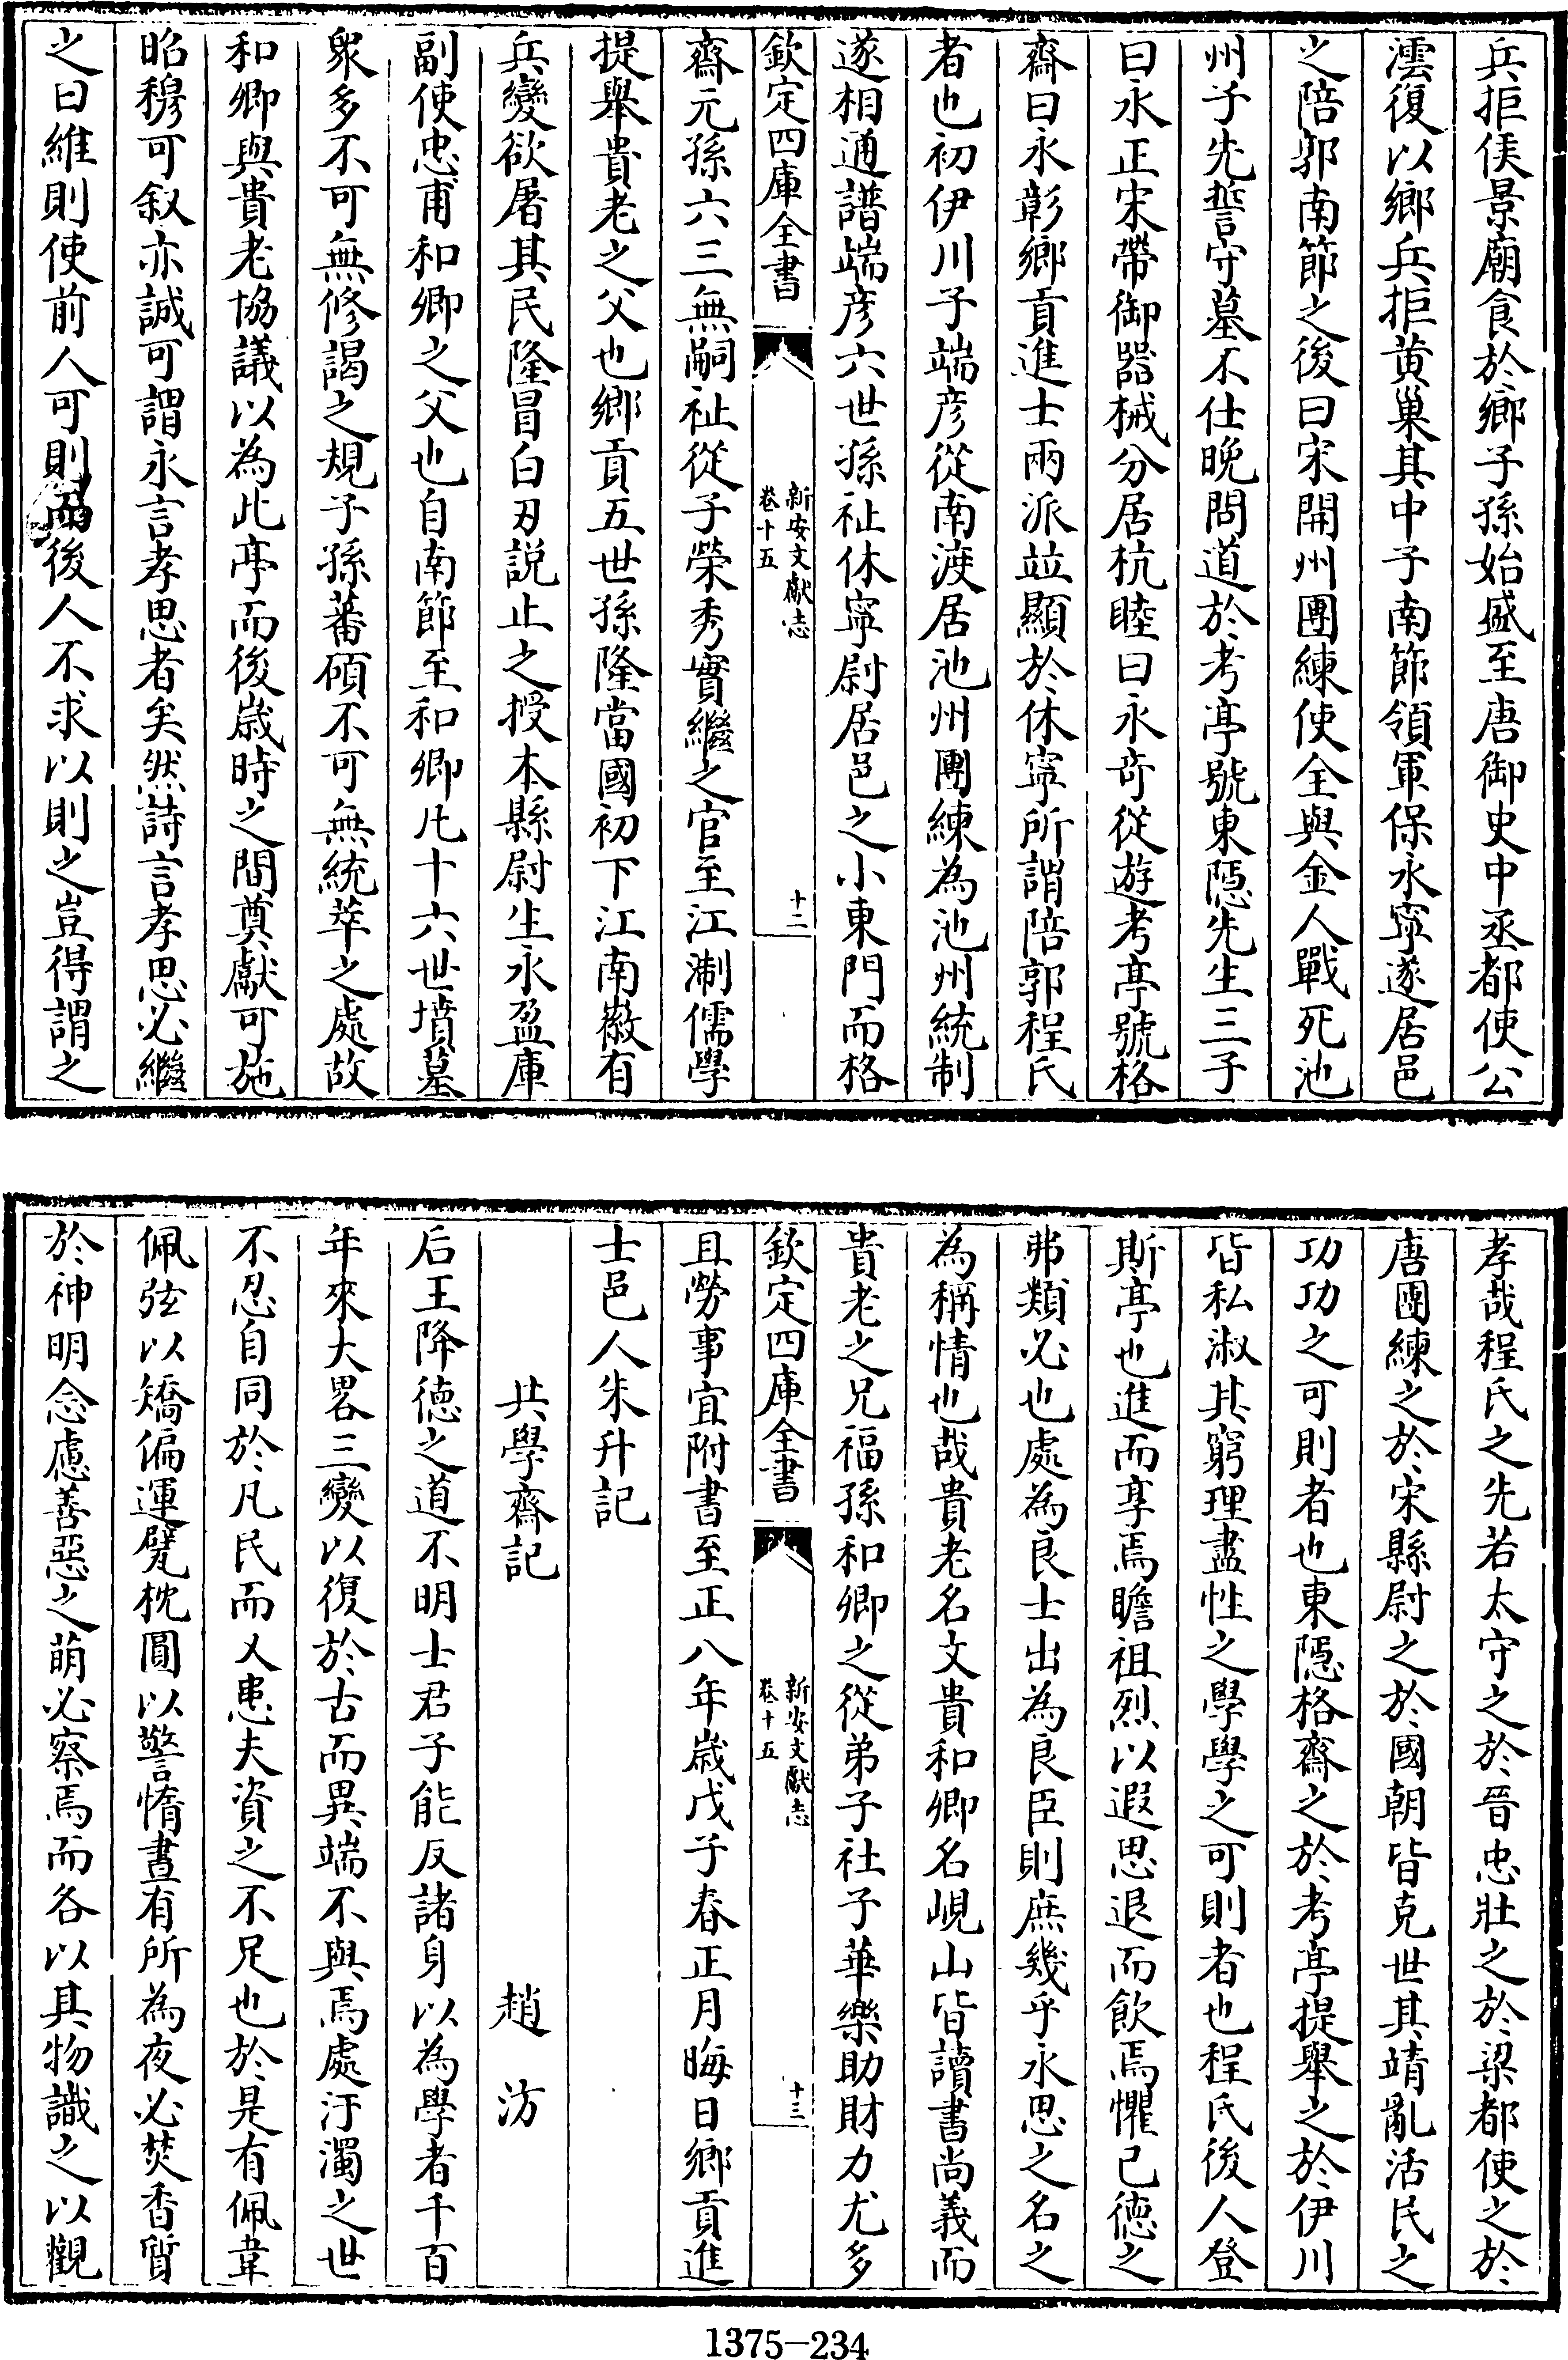 兵拒侯景廟食於鄉子孫始盛至唐御史中丞都使公
澐復以鄉兵拒黄巢其中子南節領軍保永寧遂居邑
之陪郭南節之後曰宋開州團練使全與金人戰死池
州子先誓守墓不仕晚問道於考亭號東隱先生三子
曰永正宋帶御器械分居杭睦曰永奇從遊考亭號格
齋曰永彰鄉貢進士兩派竝顯於休寧所謂陪郭程氏
者也初伊川子端彦從南渡居池州團練為池州統制
遂相通譜端彦六世孫祉休寧尉居邑之小東門而格
欽定四庫全書
新安文獻志
卷十五
十二
齋元孫六三無嗣祉從子榮秀實繼之官至江淛儒學
提舉貴老之父也鄉貢五世孫隆當國初下江南徽有
兵變欲屠其民隆冒白刃説止之授本縣尉生永盈庫
副使忠甫和卿之父也自南節至和卿凡十六世墳墓
衆多不可無修謁之規子孫蕃碩不可無統萃之處故
和卿與貴老協議以為此亭而後歳時之間奠獻可施
昭穆可叙亦誠可謂永言孝思者矣然詩言孝思必繼
之曰維則使前人可則而後人不求以則之豈得謂之
孝哉程氏之先若太守之於晉忠壯之於梁都使之於
唐團練之於宋縣尉之於國朝皆克世其靖亂活民之
功功之可則者也東隱格齋之於考亭提舉之於伊川
皆私淑其窮理盡性之學學之可則者也程氏後人登
斯亭也進而享焉瞻祖烈以遐思退而飲焉懼已德之
弗類必也處為良士出為良臣則庶幾乎永思之名之
為稱情也哉貴老名文貴和卿名峴山皆讀書尚義而
貴老之兄福孫和卿之從弟子社子華樂助財力尤多
欽定四庫全書
新安文獻志
卷十五
十三
且勞事宜附書至正八年歳戊子春正月晦日鄉貢進
士邑人朱升記
共學齋記　趙汸
后王降德之道不明士君子能反諸身以為學者千百
年來大畧三變以復於古而異端不與焉處汙濁之世
不忍自同於凡民而乂患夫資之不足也於是有佩韋
佩弦以矯偏運甓枕圓以警惰晝有所為夜必焚香質
於神明念慮善惡之萌必察焉而各以其物識之以觀
1375-234